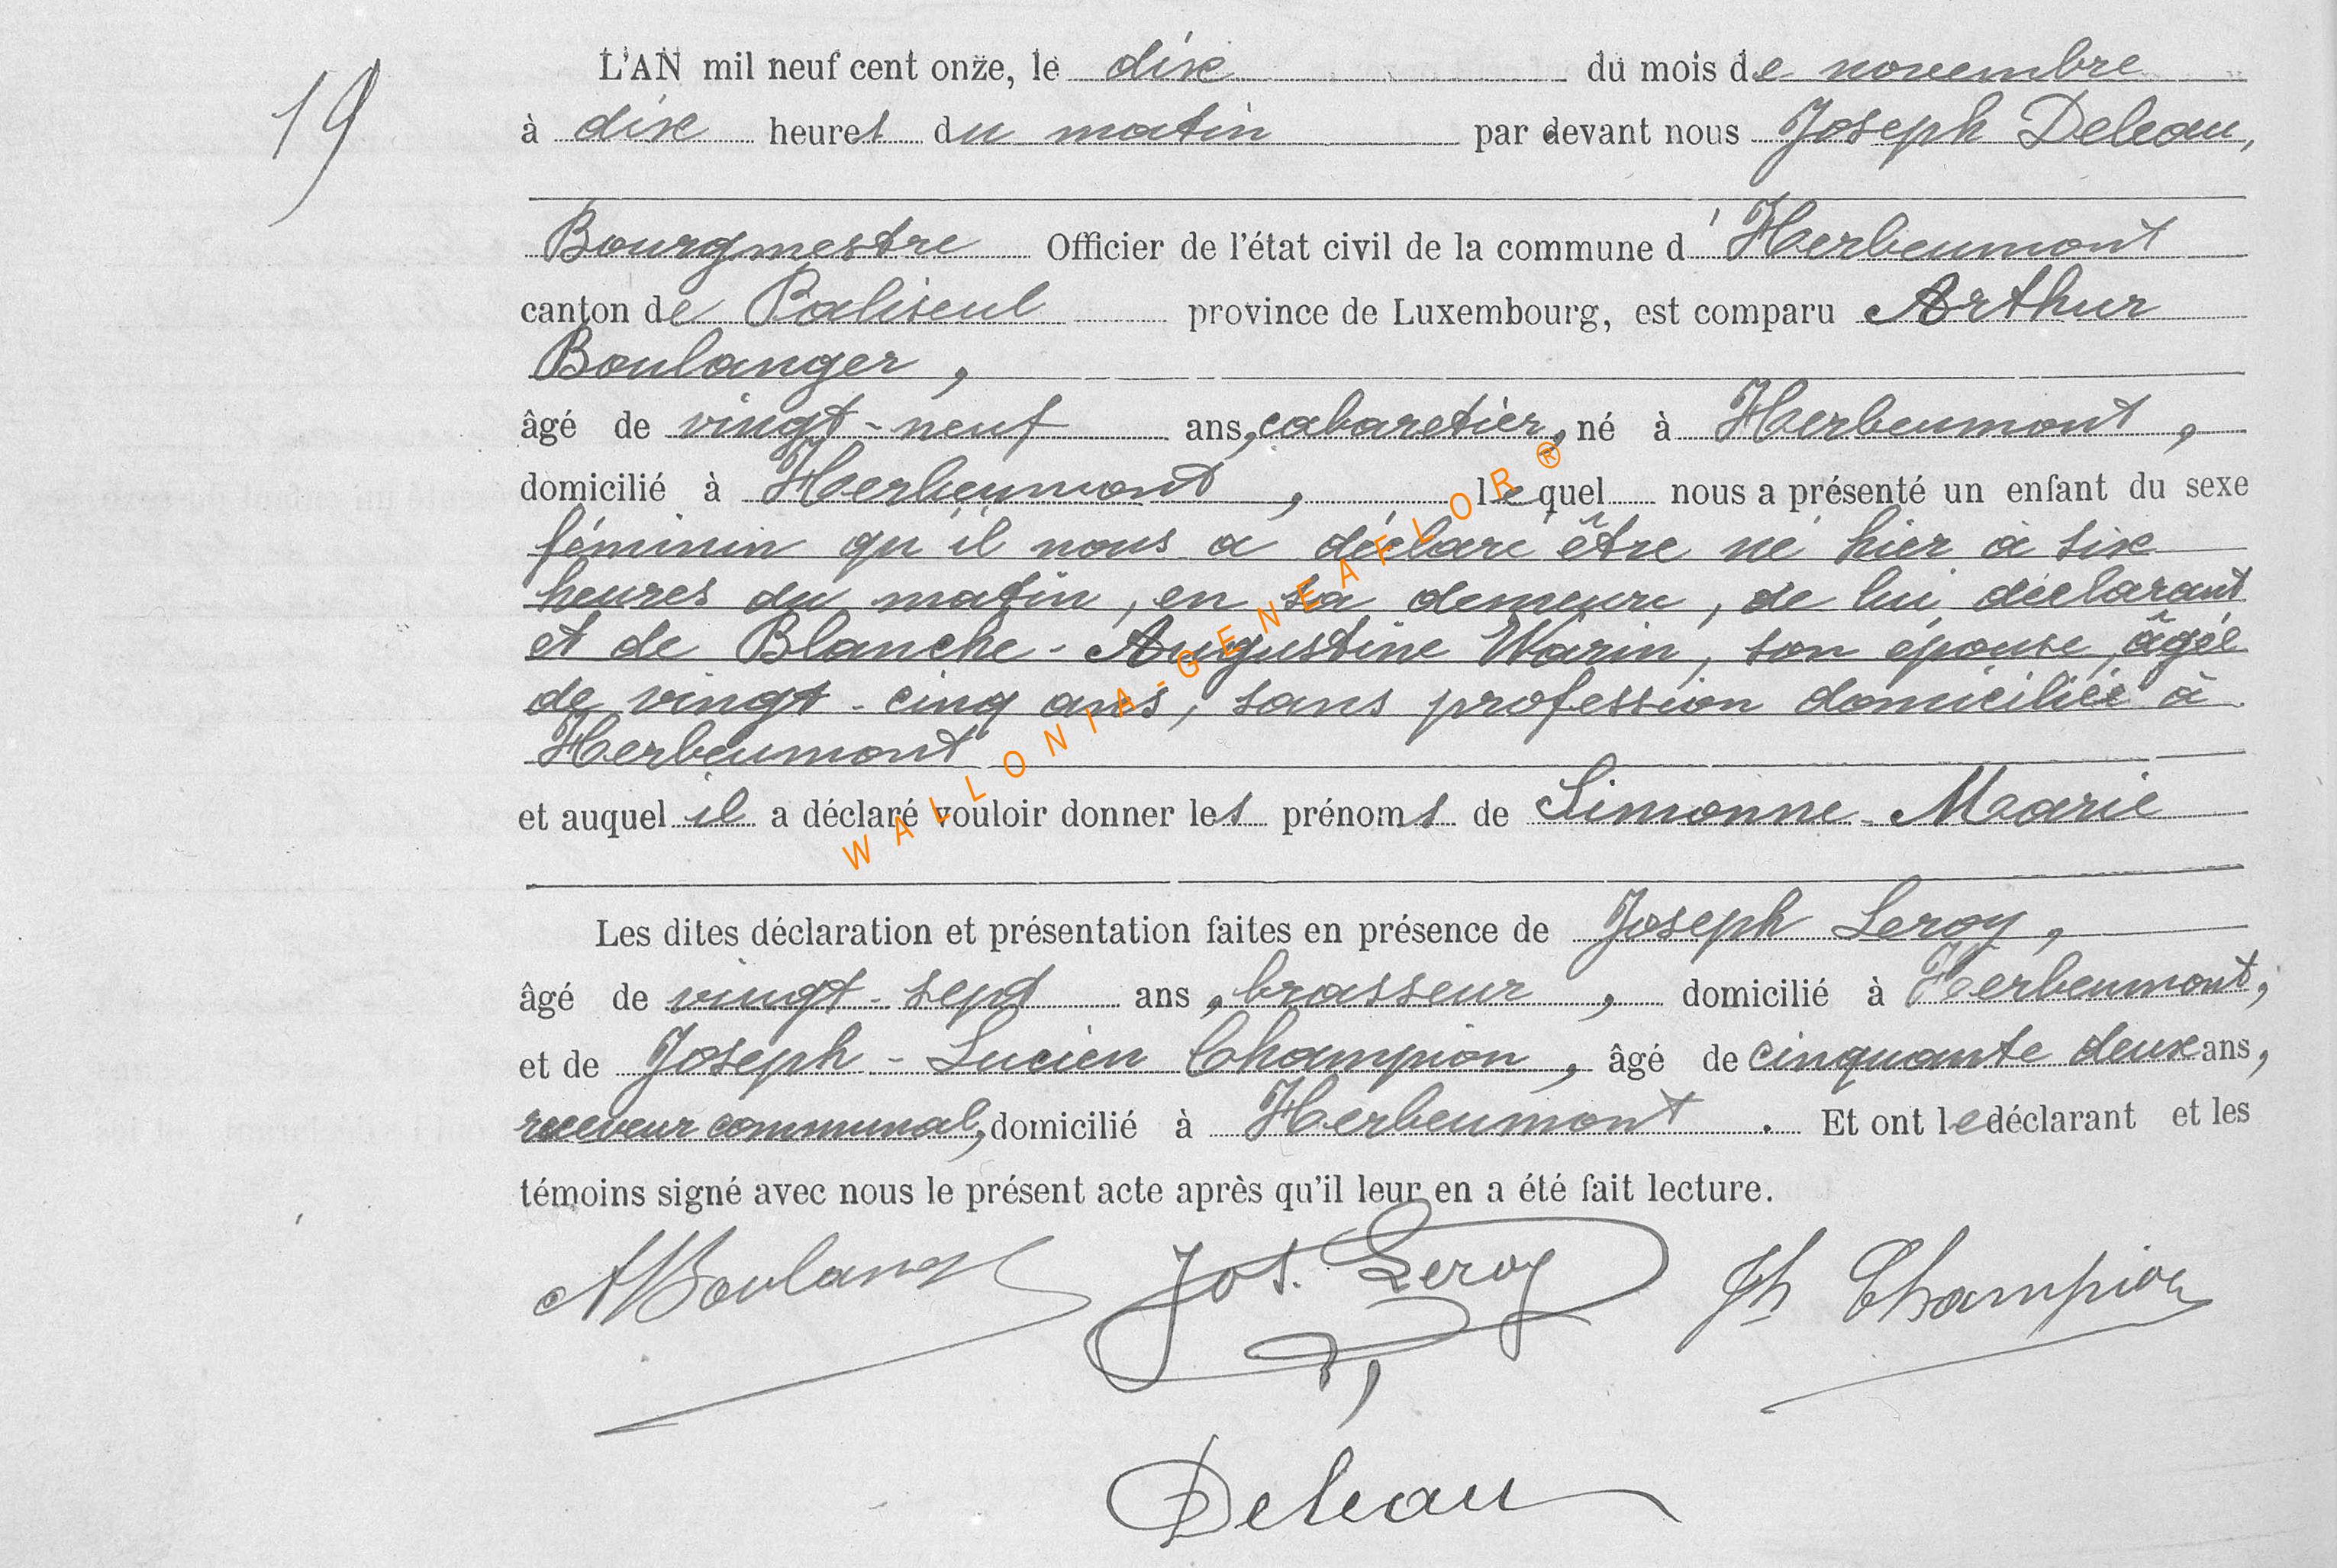 19
L'AN mil neuf cent onze, le dix du mois de novembre
à dix heures du matin par devant nous Joseph Deleau,
Bourgmestre Officier de l'état civil de la commune d'Herbeumont
canton de Paliseul province de Luxembourg, est comparu Arthur
Boulanger,
âgé de vingt-neuf ans, cabaretier, né à Herbeumont,
domicilié à Herbeumont, lequel nous a présenté un enfant du sexe
féminin qu'il nous a déclaré être né hier à six
heures du matin, en sa demeure, de lui déclarant
et de Blanche-Augustine Warin, son épouse, âgée
de vingt-cinq ans, sans profession domiciliée à
Herbeumont
et auquel il a déclaré vouloir donner les prénoms de Simonne-Marie
Les dites déclaration et présentation faites en présence de Joseph Leroy,
âgé de vingt-sept ans, brasseur, domicilié à Herbeumont,
et de Joseph-Lucien Champion, âgé de cinquante deux ans,
receveur communal, domicilié à Herbeumont. Et ont le déclarant et les
témoins signé avec nous le présent acte après qu'il leur en a été fait lecture.
A Boulanger Jos. Leroy Jh Champion
Deleau
WALLONIA-GENEAFLOR ®